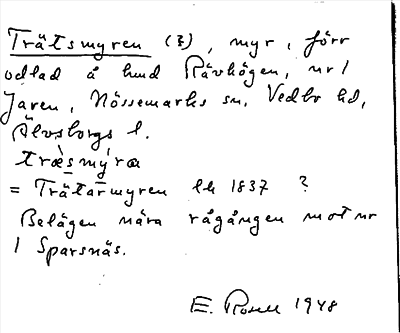 Trätsmyren (3), myr, förr
odlad å hmd Rävhögen, nr 1
Jaren, Nössemarks sn, Vedbo hd,
Älvsborgs l.
træ̀smýra
= Trätarmyren lh 1837 ?
Belägen nära rågången mot nr
1 Sparsnäs.
E. Rosell 1948